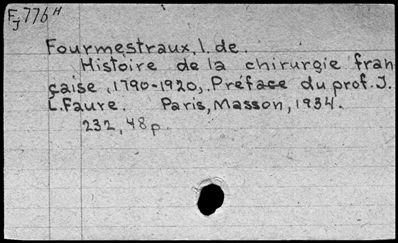 F 776 H
J
Fourmestraux, I. de.
Histoire de la chirurgie fran
çaise, 1790-1920, Préface du prof. J.
L. Faure. Paris, Masson, 1934.
232, 48 p.